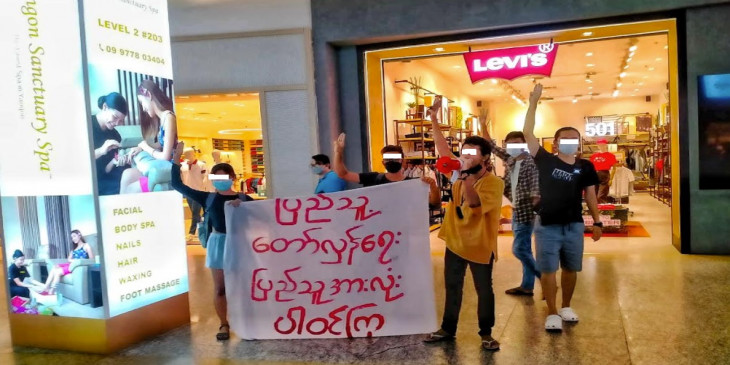 ngon Sanctuary Spa
LEVEL 2 #203
09 9778 03404
FACIAL
BODY SPA
NAILS
HAIR
WAXING
FOOT MASSAGE
LEVI'S®
501
ပြည်သူ့
တော်လှန်ရေး
ပြည်သူအားလုံး
ပါဝင်ကြ